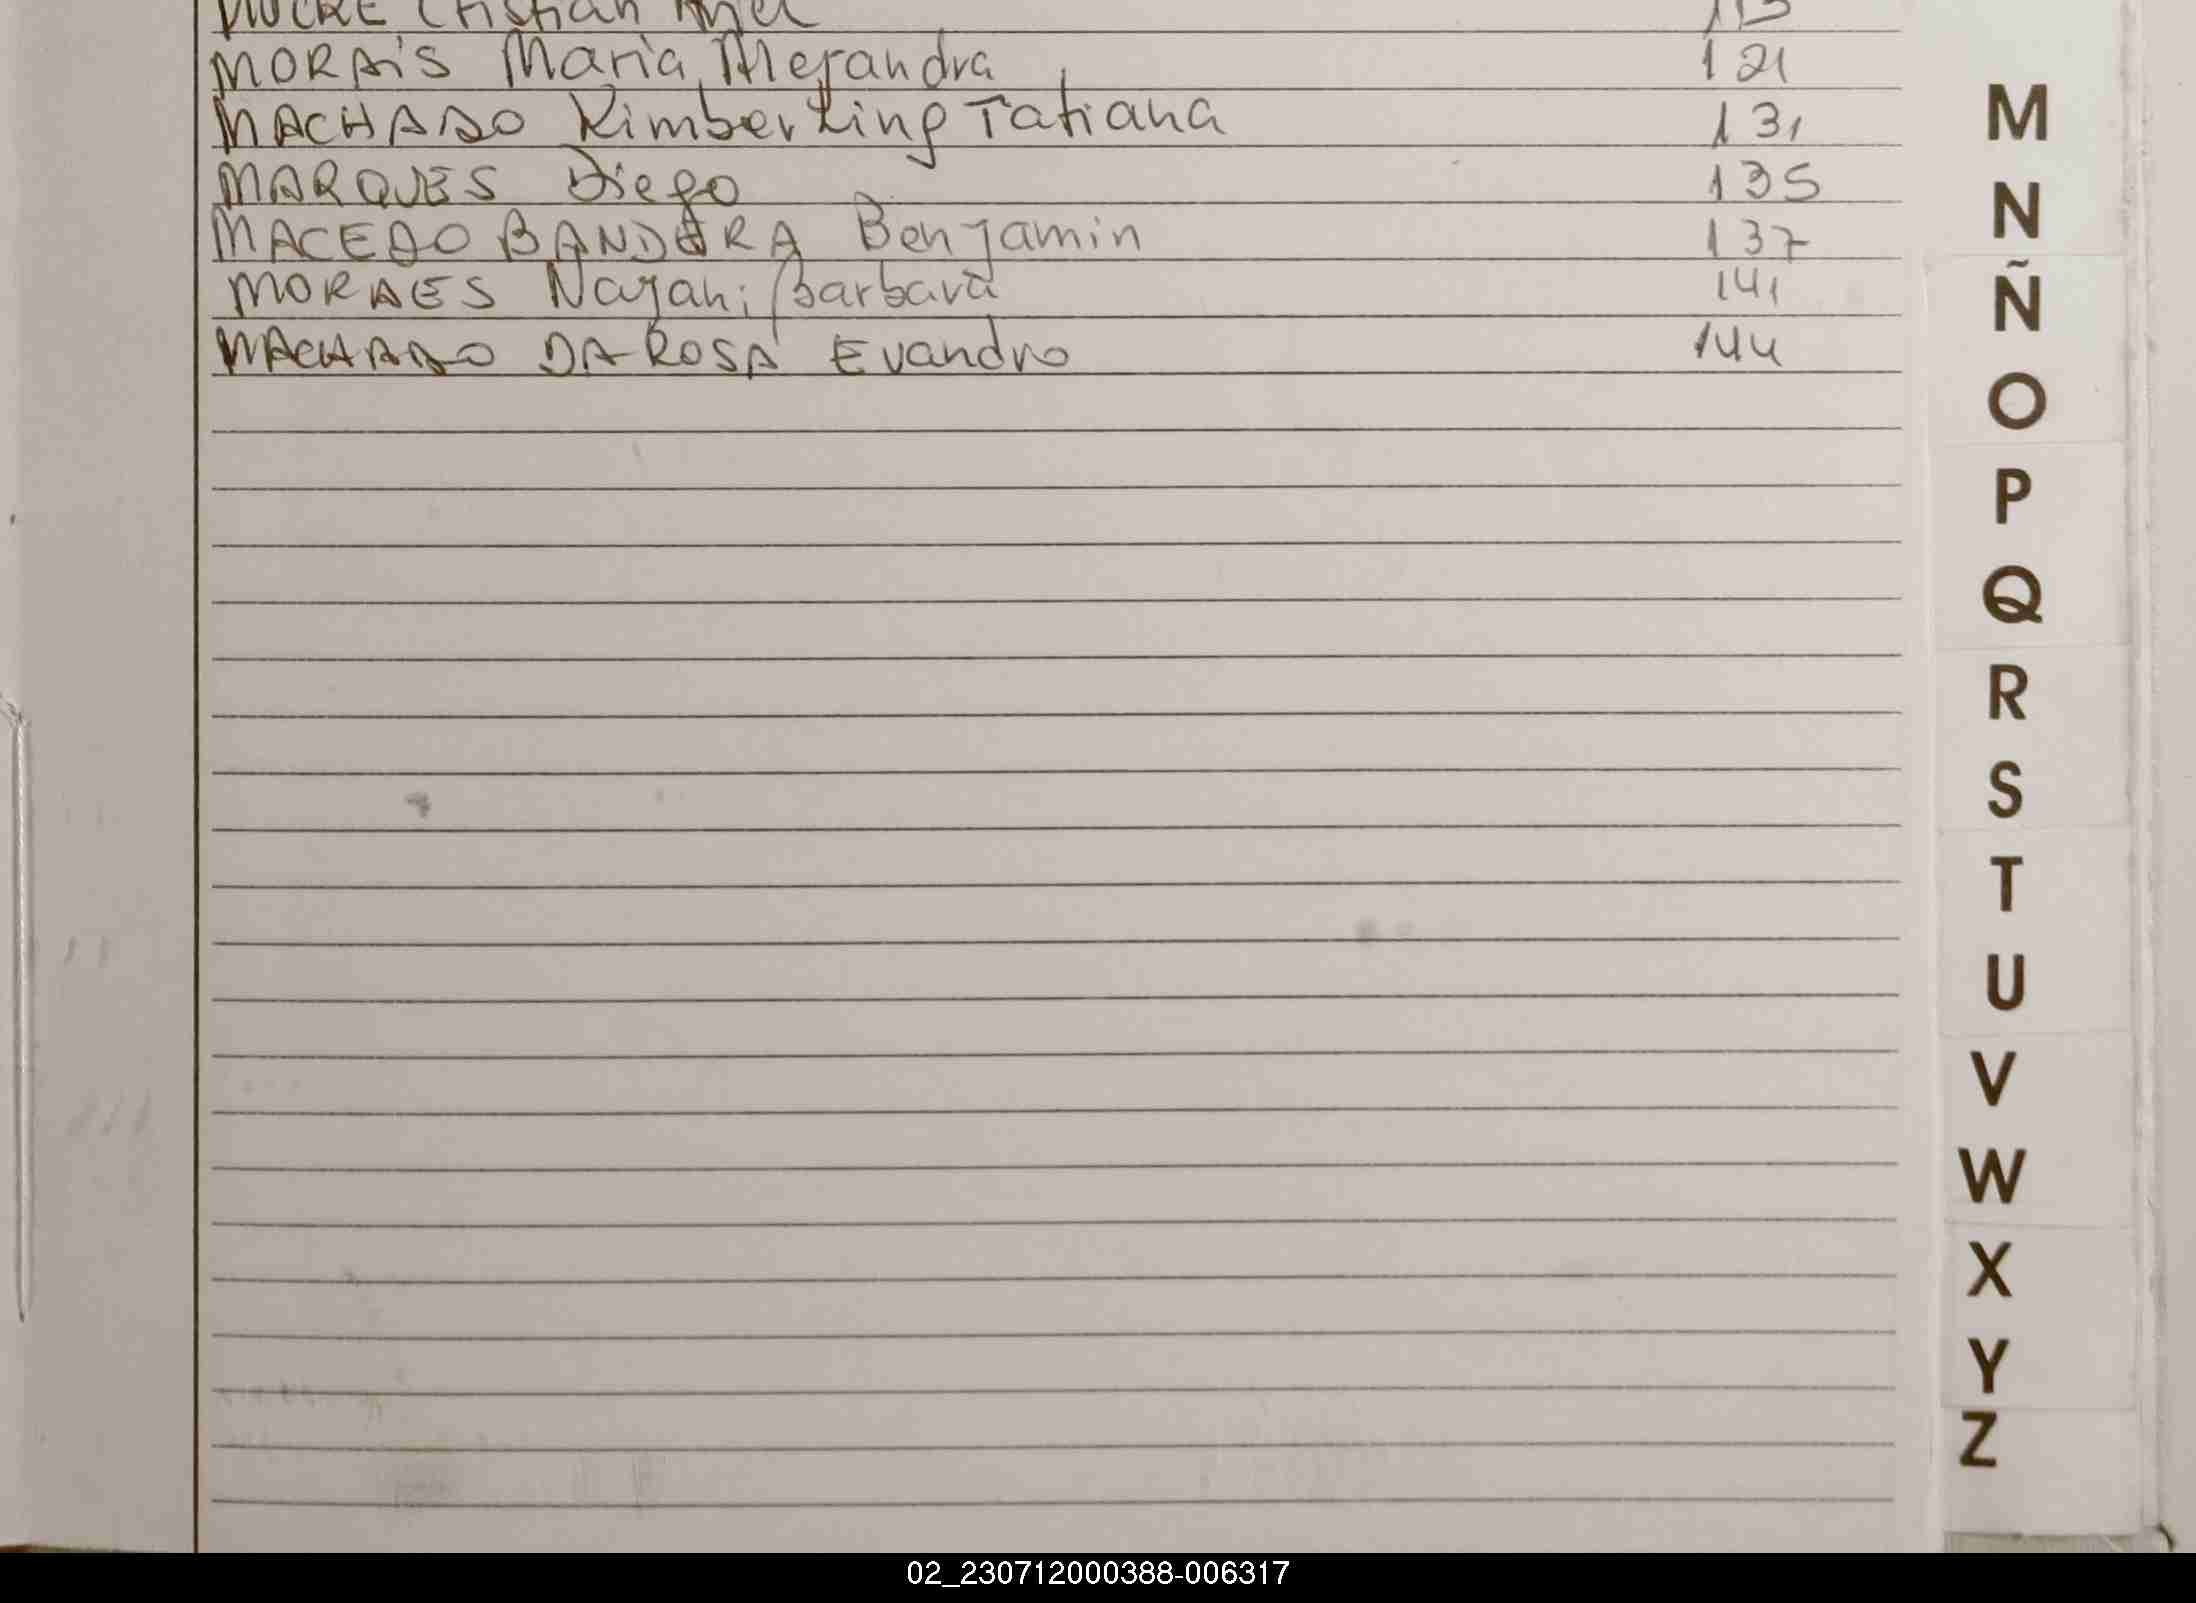 Cristian 113
MORAIS Maria Alejandra 121
MACHADO Kimberling Tatiana 131
MARQUES Diego 135
MACEDO BANDERA Benjamin 137
MORAES Nayani Barbara 141
MACHADO DA ROSA Evandro 144
M
N
Ñ
O
P
Q
R
S
T
U
V
W
X
Y
Z
02_230712000388-006317